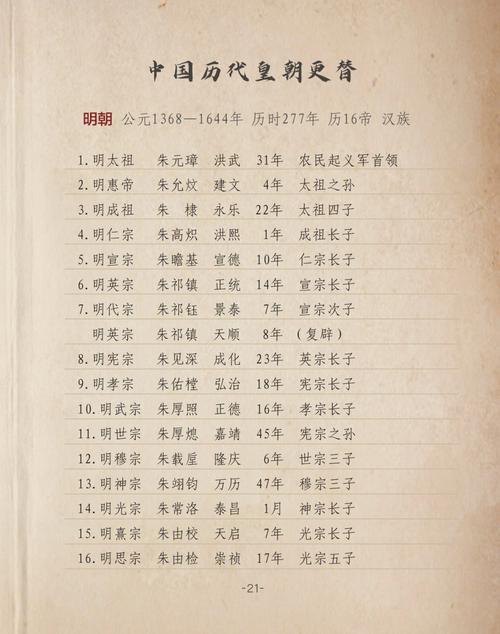 中国历代皇朝更替
明朝 公元1368—1644年 历时277年 历16帝 汉族
1.明太祖 朱元璋 洪武 31年 农民起义军首领
2.明惠帝 朱允炆 建文 4年 太祖之孙
3.明成祖 朱棣 永乐 22年 太祖四子
4.明仁宗 朱高炽 洪熙 1年 成祖长子
5.明宣宗 朱瞻基 宣德 10年 仁宗长子
6.明英宗 朱祁镇 正统 14年 宣宗长子
7.明代宗 朱祁钰 景泰 7年 宣宗次子
明英宗 朱祁镇 天顺 8年 (复辟)
8.明宪宗 朱见深 成化 23年 英宗长子
9.明孝宗 朱佑樘 弘治 18年 宪宗长子
10.明武宗 朱厚照 正德 16年 孝宗长子
11.明世宗 朱厚熜 嘉靖 45年 宪宗之孙
12.明穆宗 朱载垕 隆庆 6年 世宗三子
13.明神宗 朱翊钧 万历 47年 穆宗三子
14.明光宗 朱常洛 泰昌 1月 神宗长子
15.明熹宗 朱由校 天启 7年 光宗长子
16.明思宗 朱由检 崇祯 17年 光宗五子
-21-